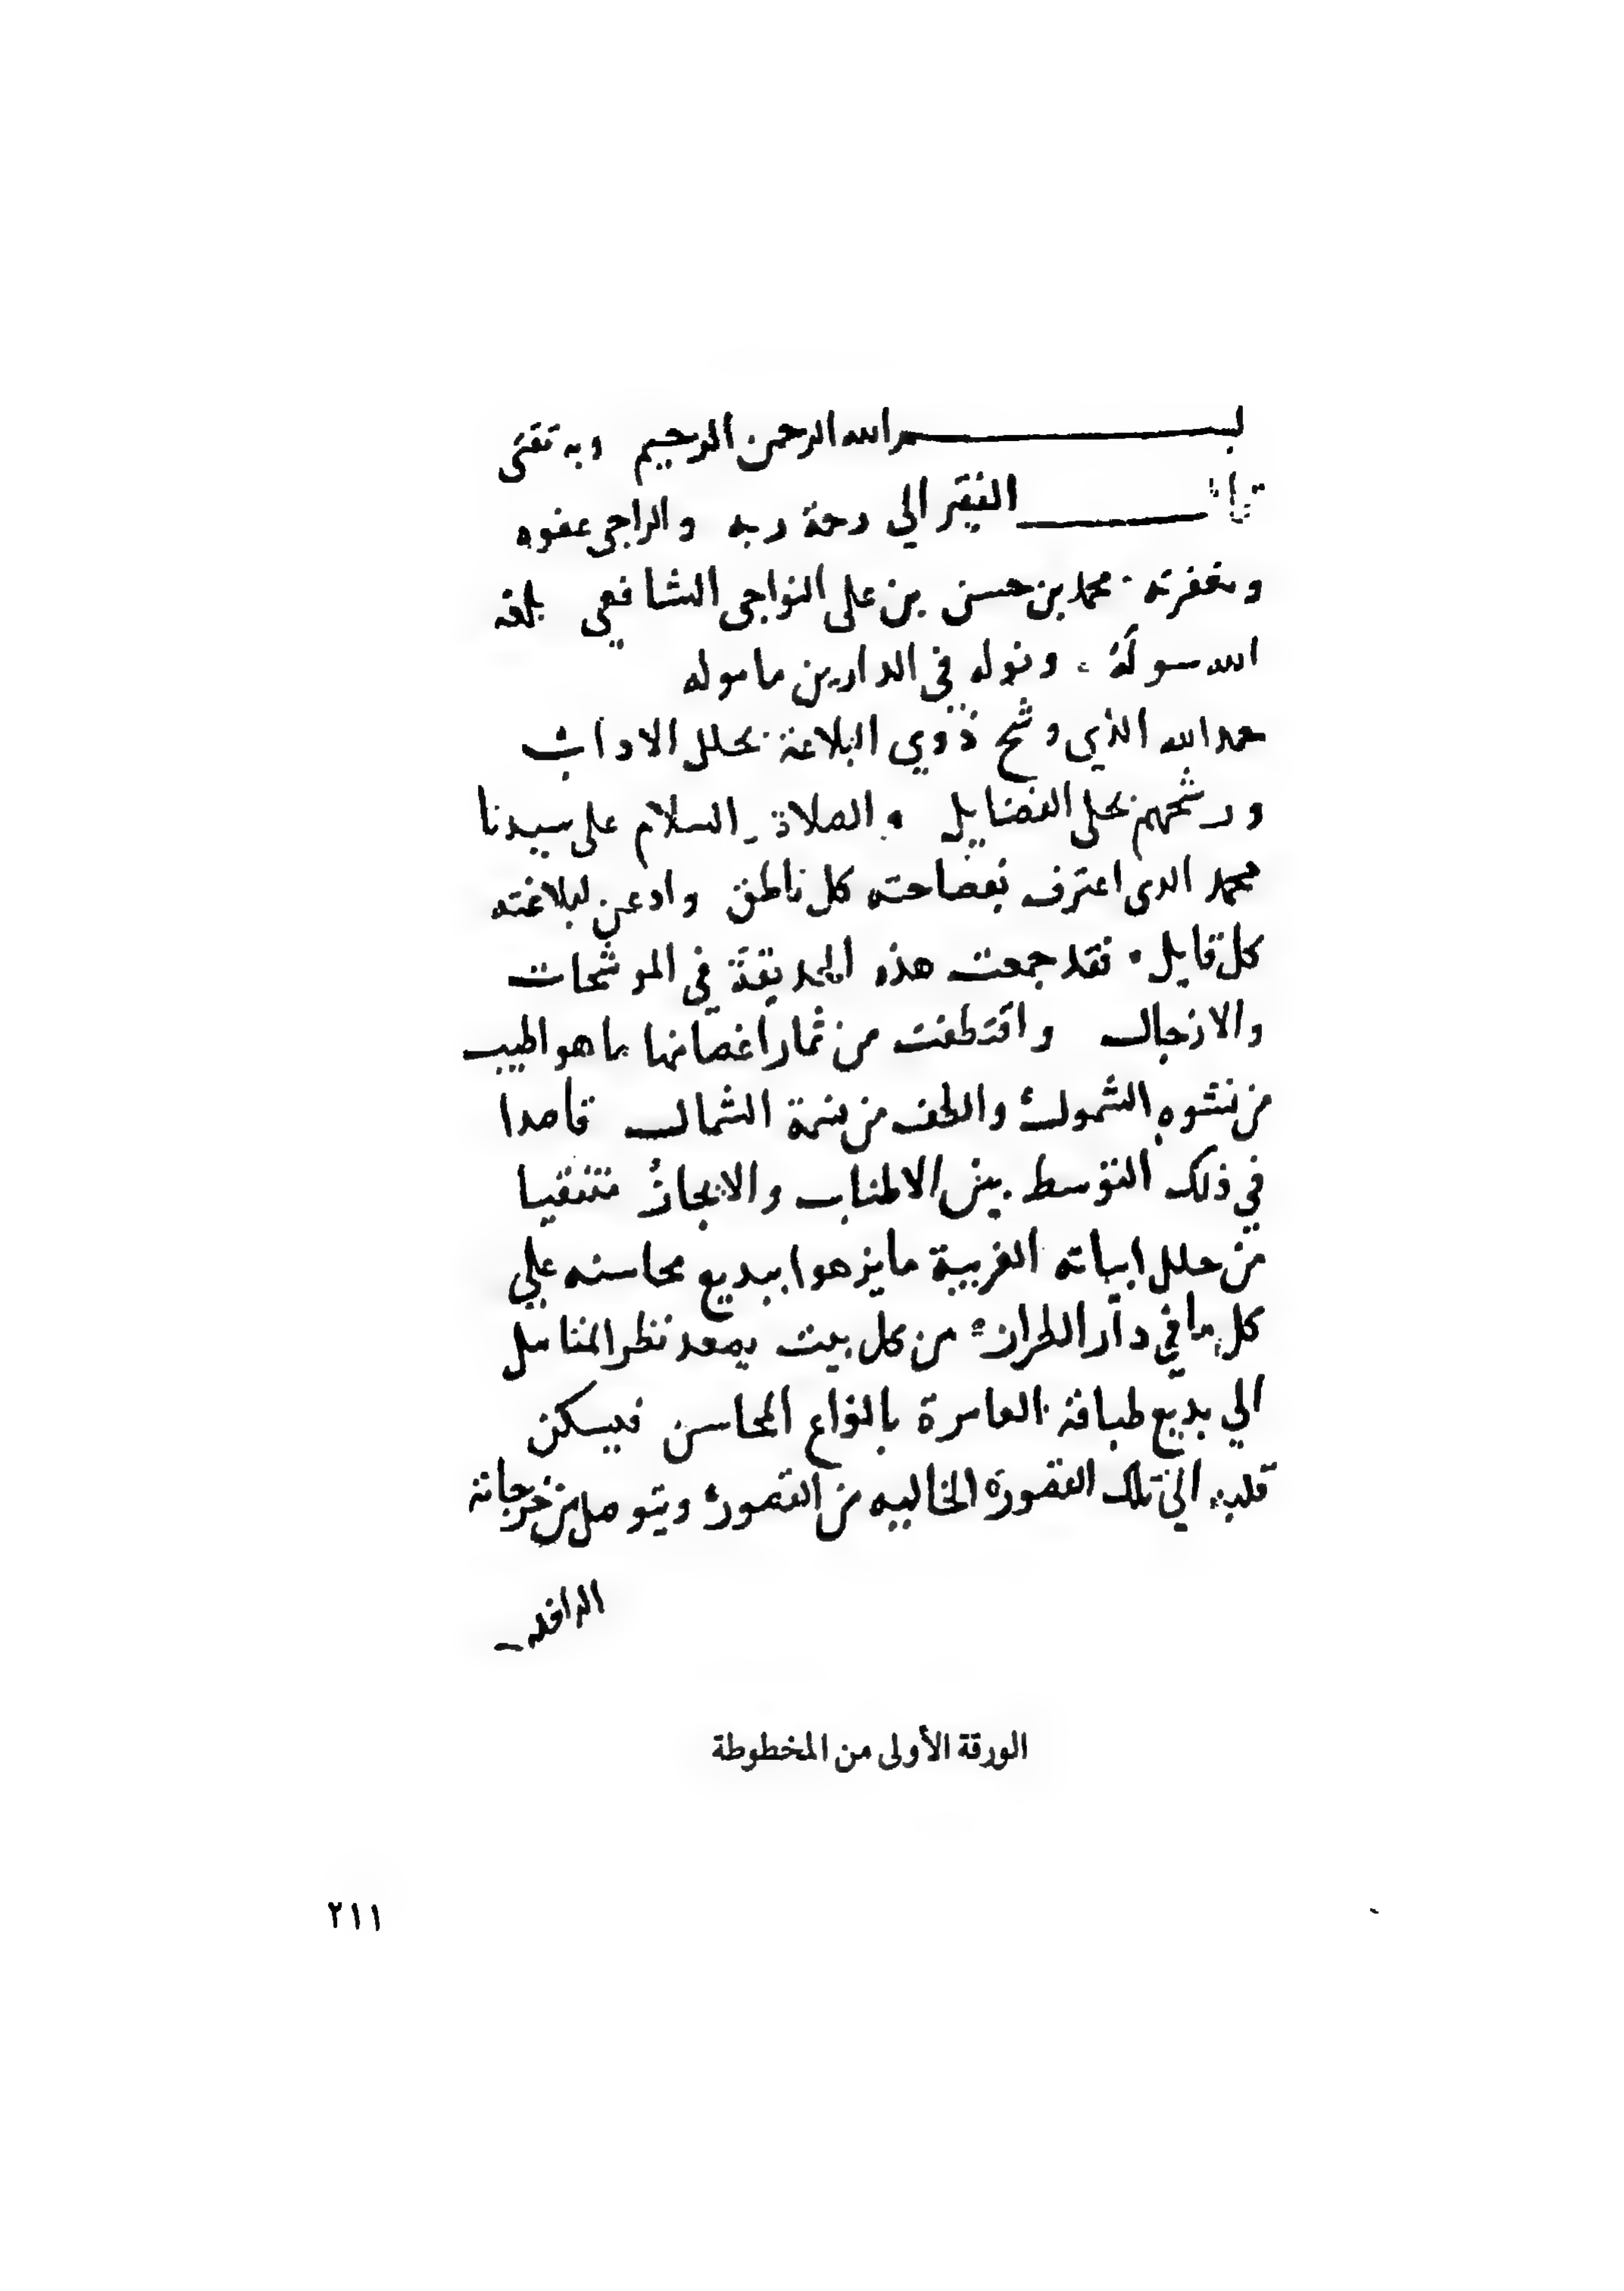 بسم الله الرحمن الرحيم وبه ثقتى
قال الفقير الي رحمة ربه والراجى عفوه
ومغفرته محمد بن حسن بن على النواجى الشافعي بلغه
الله سوله ونوله في الدارين ماموله
حمد الله الذي وشح ذوي البلاغة بحلل الاداب
ورشحهم بحلى الفضايل والصلاة والسلام على سيدنا
محمد الدى اعترف بفصاحته كل ناطق وادعن لبلاغته
كل قايل فقد جمعت هذه الحديقة في الموشحات
والازجال واقتطفت من ثمار اغصانها ما هو اطيب
من نشوه الشمول والطف من نسمة الشمال قاصدا
في ذلك التوسط بين الاطناب والايجاز منتقيا
من حلل ابياته الغريبة ما يزهوا ببديع محاسنه علي
كل ما في دار الطراز من كل بيت يصعد نظر المتامل
الي بديع طباقه العامرة بانواع المحاسن فيسكن
قلبه الى تلك القصورة الخاليه من القصور ويتوصل من خرجاته
الورقة الأولى من المخطوطة
٢١١